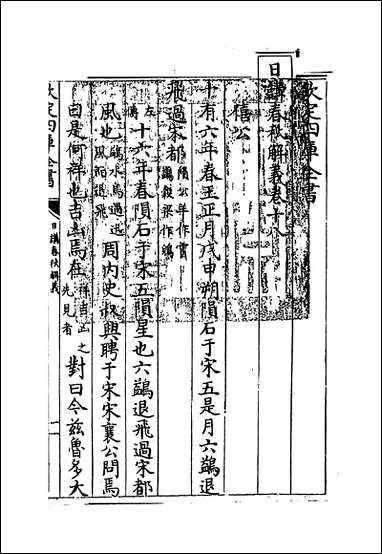 欽定四庫全書
日講春秋解義卷十八
僖公
十有六年春王正月戊申朔隕石于宋五是月六鷁退
飛過宋都
隕公羊作霣
鷁穀梁作鶂
左傳
十六年春隕石于宋五隕星也六鷁退飛過宋都
風也
鷁水鳥遇迅
風而退飛
周內史叔興聘于宋宋襄公問焉
曰是何祥也吉凶焉在
祥吉凶之
先見者
對曰今茲魯多大
欽定四庫全書
日講春秋解義
一